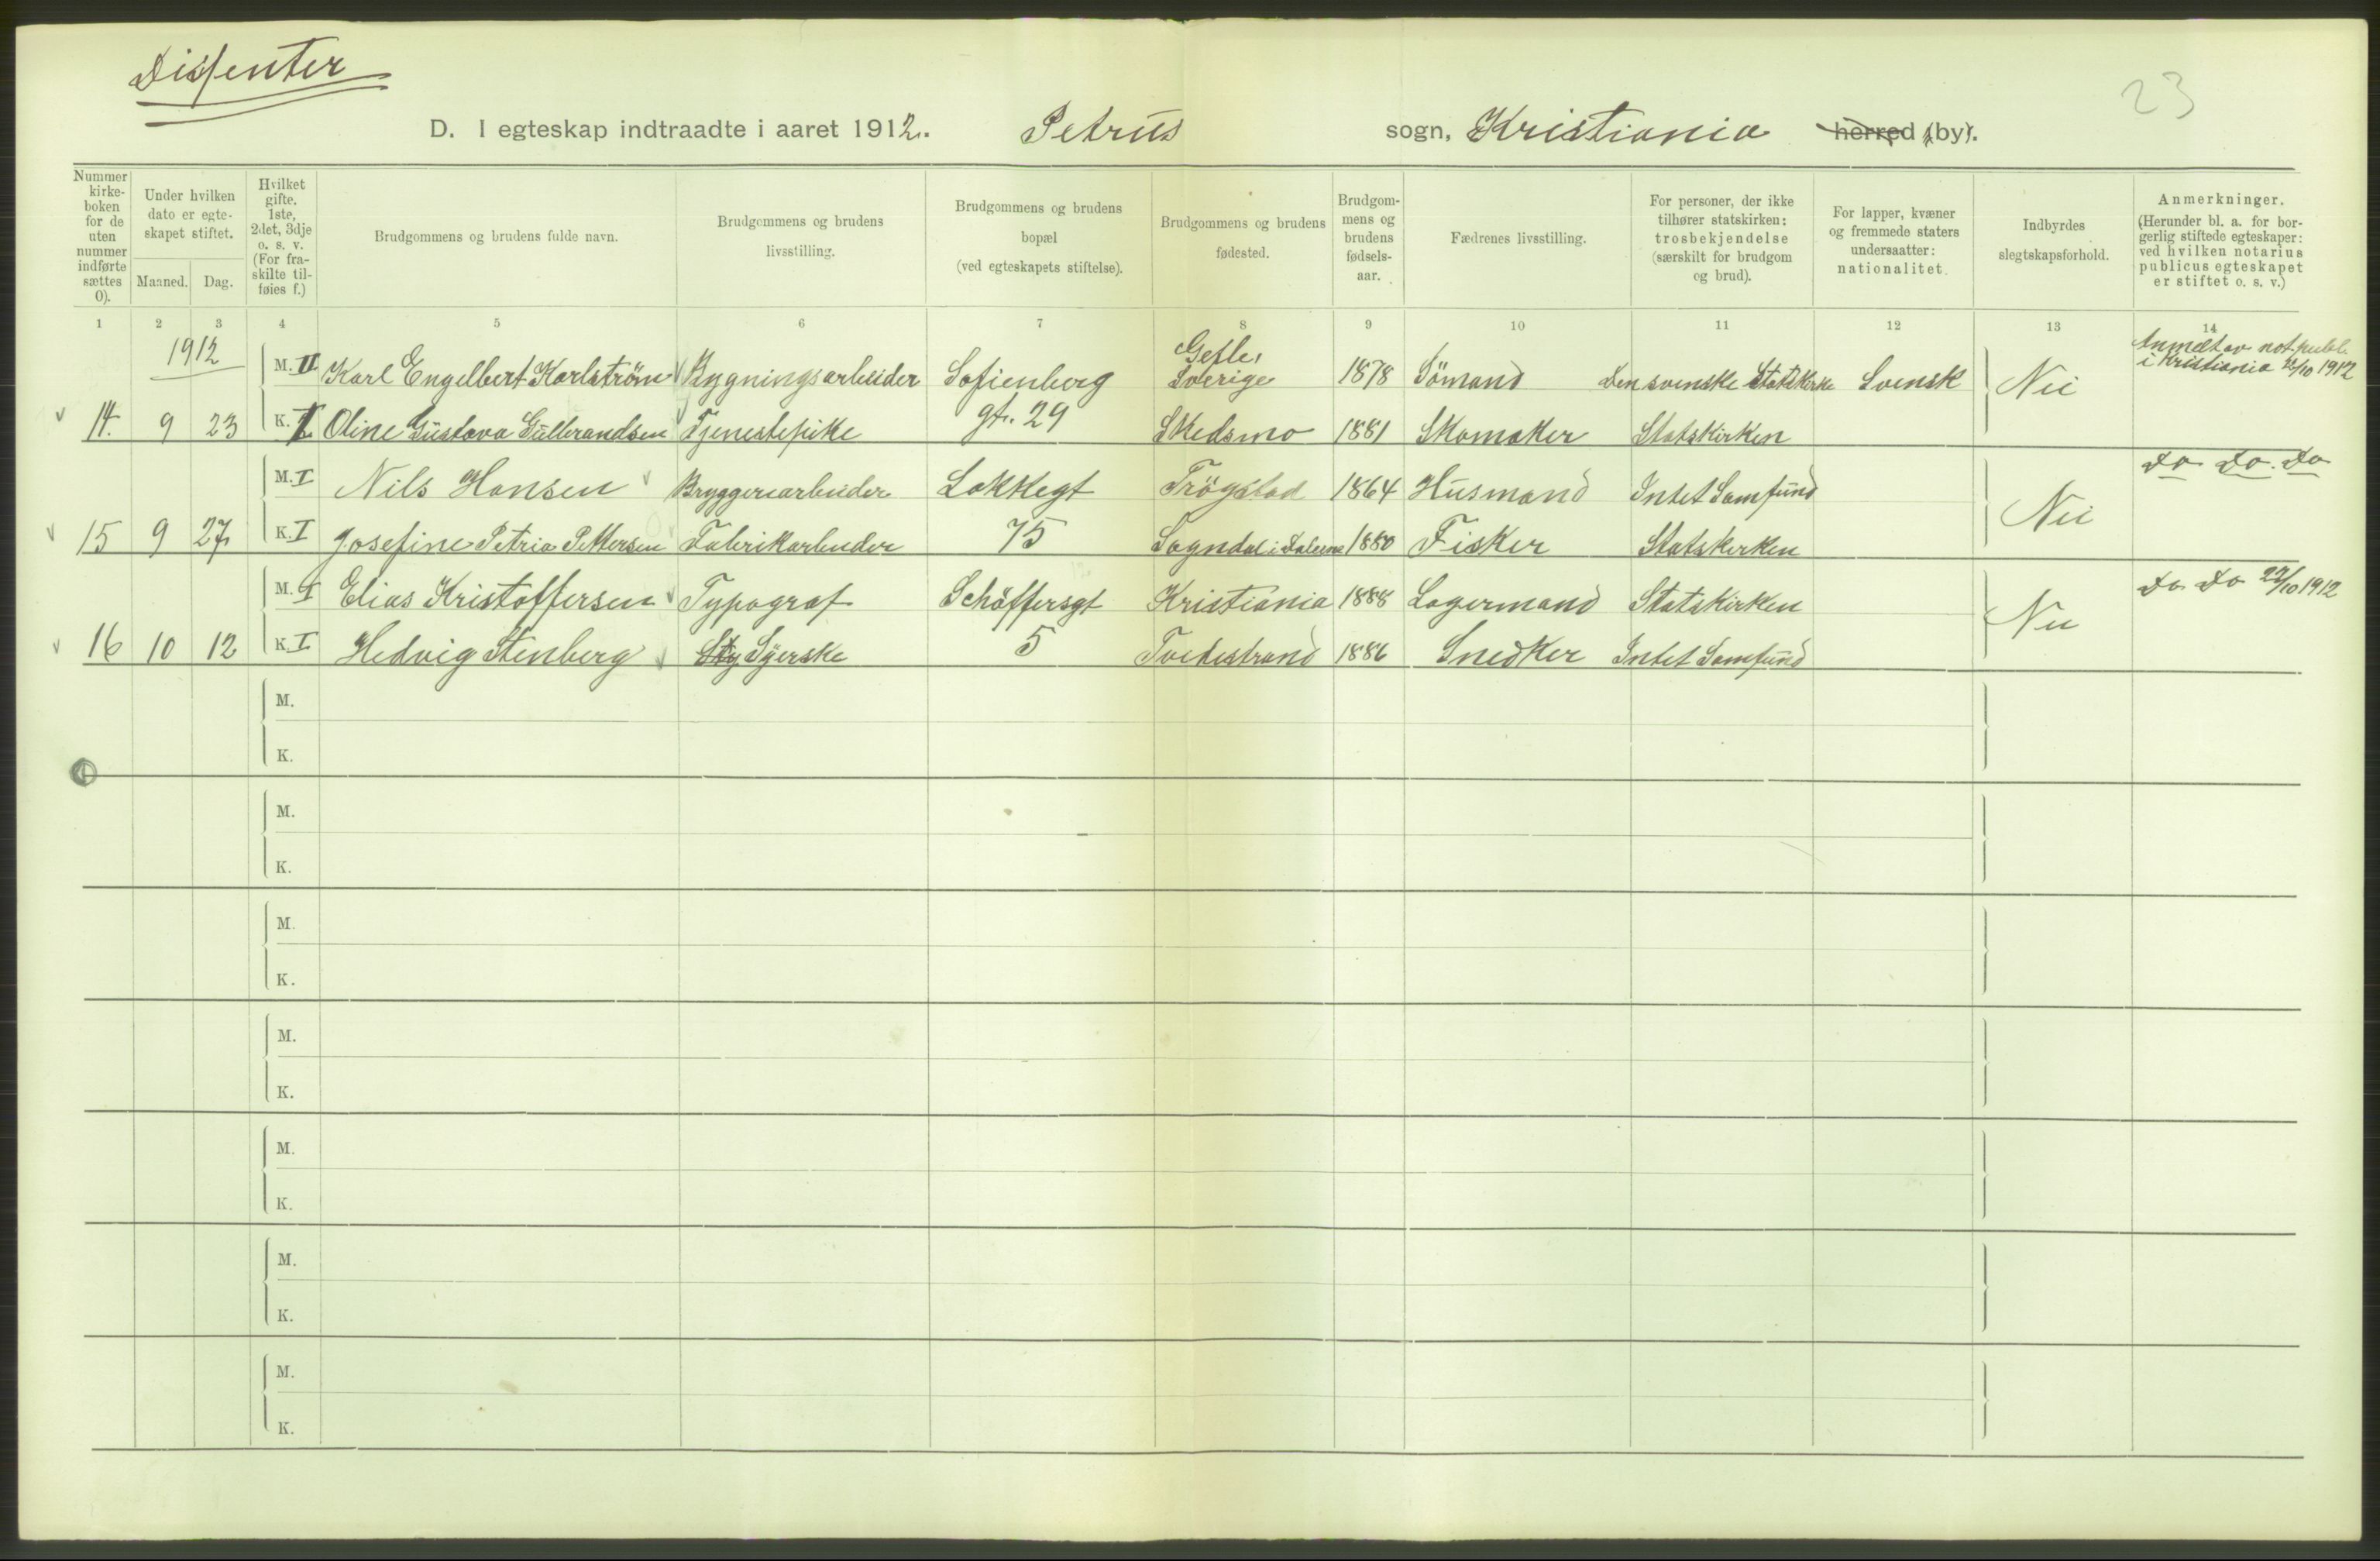 Dissenter
23
D. I egteskap indtraadte i aaret 1912. Petrus sogn, Kristiania herred (by).
Nummer kirke-boken for de uten nummer indførte sættes 0).
Under hvilken dato er egte-skapet stiftet.
Maaned. Dag.
Hvilket gifte. 1ste, 2det, 3dje o. s. v. (For fra-skilte til-føies f.)
Brudgommens og brudens fulde navn.
Brudgommens og brudens livsstilling.
Brudgommens og brudens bopæl (ved egteskapets stiftelse).
Brudgommens og brudens fødested.
Brudgom-mens og brudens fødsels-aar.
Fædrenes livsstilling.
For personer, der ikke tilhører statskirken: trosbekjendelse (særskilt for brudgom og brud).
For lapper, kvæner og fremmede staters undersaatter: nationalitet.
Indbyrdes slegtskapsforhold.
Anmerkninger. (Herunder bl. a. for bor-gerlig stiftede egteskaper: ved hvilken notarius publicus egteskapet er stiftet o. s. v.)
1 2 3 4 5 6 7 8 9 10 11 12 13 14
1912
M. II Karl Engelbert Karlstrøm Bygningsarbeider Sofienberg Gefle, Sverige 1878 Sömand Den svenske Statskirke Svensk Nei Anmeldt av not. publ. i Kristiania /10 1912
14. 9 23 K. I Oline Gustava Gulbrandsen Tjenestepike gt. 29 Skedsmo 1881 Skomaker Statskirken
M. I Nils Hansen Bryggeriarbeider Lakkegt Trögstad 1864 Husmand Intet Samfund Nei Do Do. Do
15 9 27 K. I Josefine Petria Pettersen Fabrikarbeider 75 Sogndal i Dalerne 1880 Fisker Statskirken
M. I Elias Kristoffersen Typograf Schäffersgt Kristiania 1888 Lagermand Statskirken Nei Do Do 22/10 1912
16 10 12 K. I Hedvig Stenberg Syerske 5 Tvedestrand 1886 Snedker Intet Samfund
M.
K.
M.
K.
M.
K.
M.
K.
M.
K.
M.
K.
M.
K.